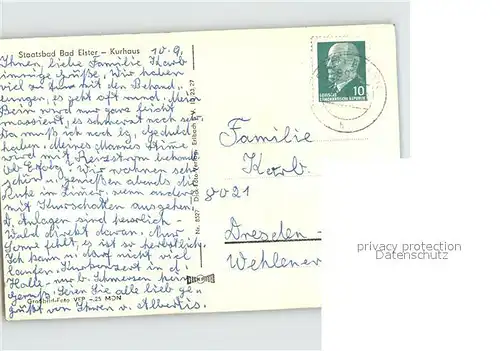 Staatsbad Bad Elster – Kurhaus
10.9.
Ihnen, liebe Familie Karb
innige Grüße. Wir haben
viel zu tun mit den Behand-
lungen, es geht oft nach. Mein
Bein wird nur ganz leicht
massiert, es schmerzt noch sehr.
Da muß ich noch Geduld
haben. Meines Mannes Stimme
wird mit Reizstrom behand.
ob Erfolg? Wir wohnen sehr
schön u. genießen abends die
Ruhe im Zimmer, wenn andere
mit Kurschatten ausgehen.
D. Anlagen sind herrlich –
Wald direkt daran. Nur
Sonne fehlt, es ist so herbstlich.
Ich kann u. darf nicht viel
laufen. Kurkonzert in d.
Halle – nur b. Schmerzen kein
genuß. Seien Sie alle lieb ge-
grüßt von Ihren v. Albertis.
Großbild-Foto VEB
-.25 MDN
Nr. 8327
10
Familie
Karb.
8021
Dresden –
Wehlener
privacy protection
Datenschutz